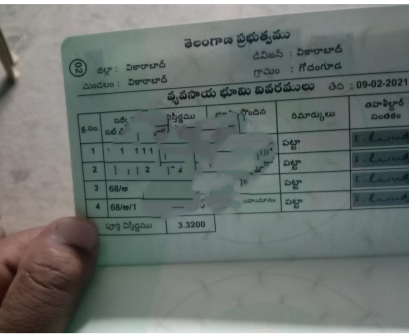 తెలంగాణ ప్రభుత్వము
02
జిల్లా : వికారాబాద్ డివిజన్ : వికారాబాద్
మండలం : వికారాబాద్ గ్రామం : గోదంగూడ
వ్యవసాయ భూమి వివరములు తేది : 09-02-2021
క్ర.సం. విస్తీర్ణము రిమార్కులు తహశీల్దార్ సంతకం
1 పట్టా
2 పట్టా
3 68/అ పట్టా
4 68/అ/1 పట్టా
పూర్తి విస్తీర్ణము 3.3200